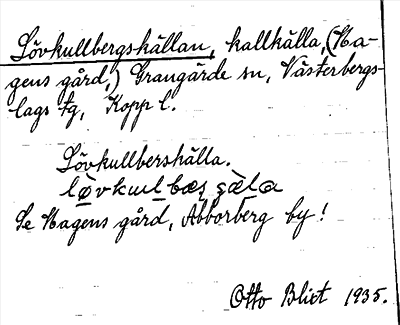 Lövkullbergskällan, kallkälla, (Ha-
gens gård,) Grangärde sn, Västerbergs-
lags tg, Kopp l.
Lövkullberskälla.
Se Hagens gård, Abborberg by!
Otto Blixt 1935.